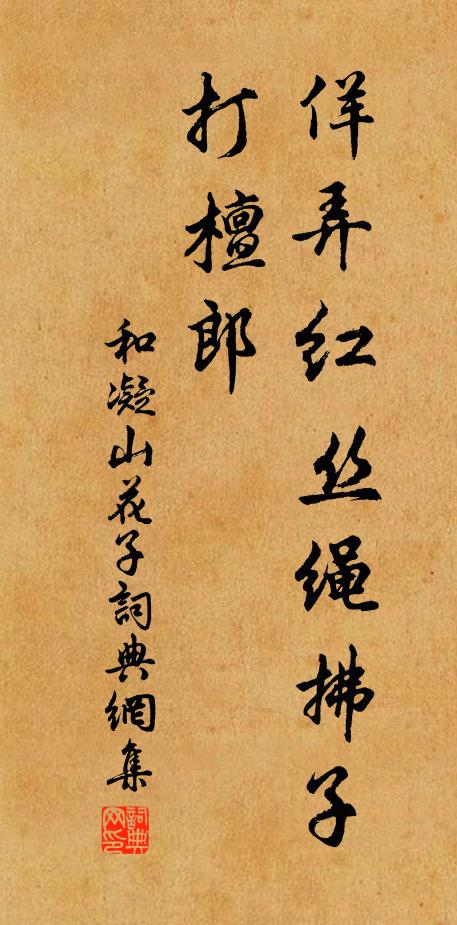 佯弄红丝绳拂子
打檀郎
和凝山花子詞典網集
詞典网印